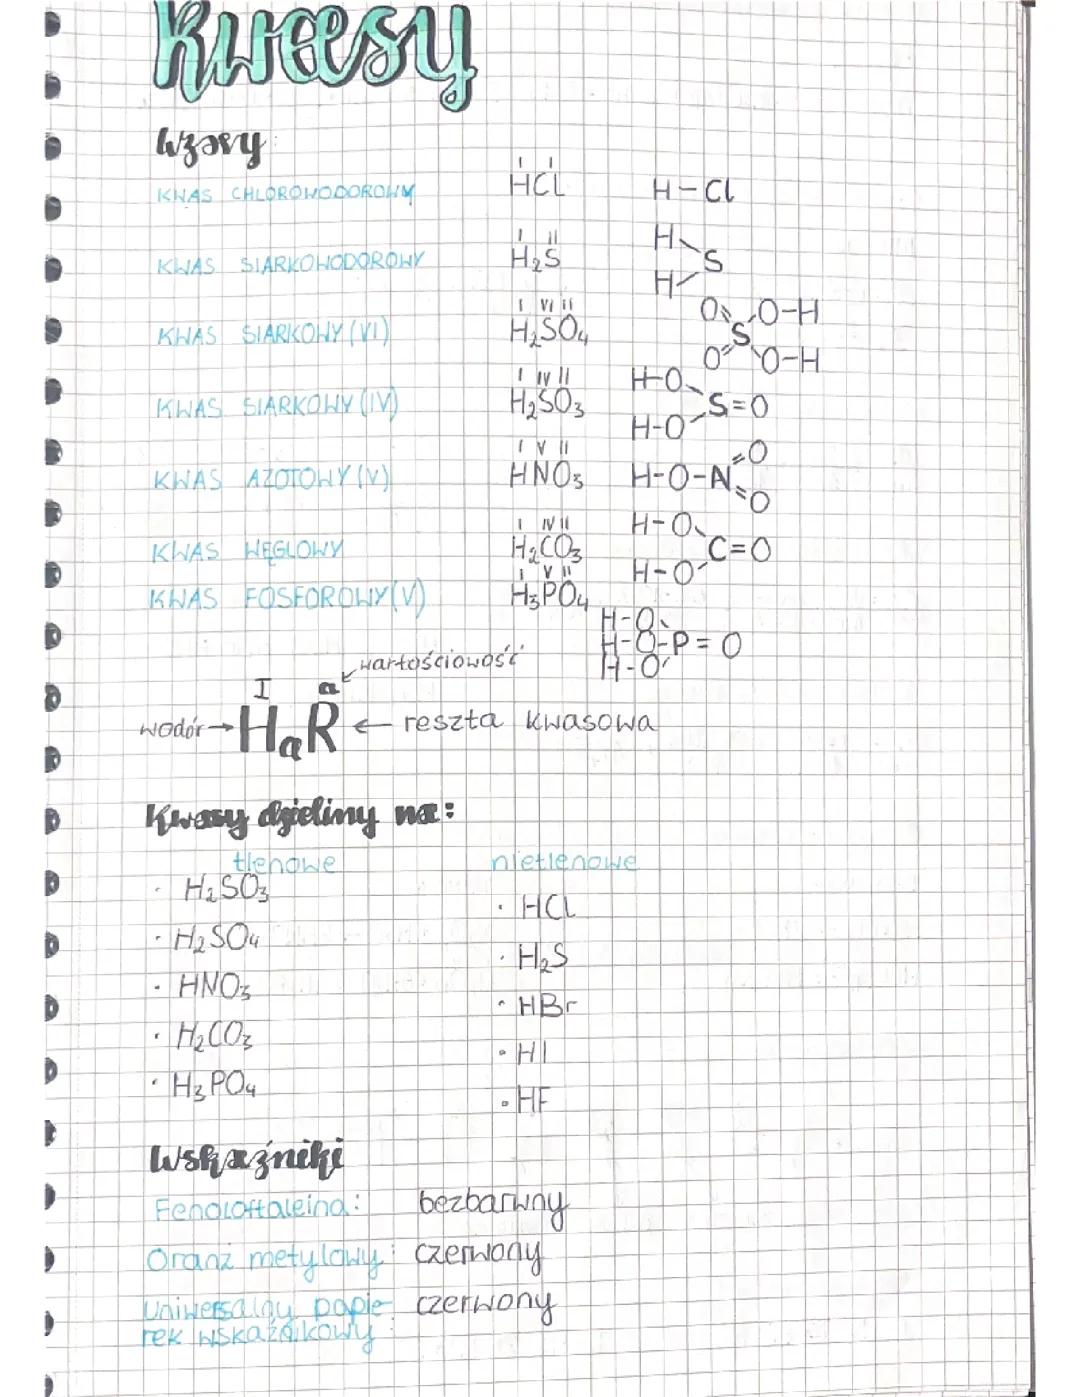 Kwasy
Wzory
KWAS CHLOROWODOROWY I I HCl H-Cl
KWAS SIARKOWODOROWY I II H₂S H H S
KWAS SIARKOWY (VI) I VI II H₂SO₄ O O-H S O O-H
KWAS SIARKOWY (IV) I IV II H₂SO₃ H-O S=O H-O
KWAS AZOTOWY (V) I V II HNO₃ H-O-N=O =O
KWAS WĘGLOWY I IV II H₂CO₃ H-O C=O H-O
KWAS FOSFOROWY(V) I V II H₃PO₄ H-O H-O-P=O H-O
wartościowość
I a
wodór → HₐR ← reszta kwasowa
Kwasy dzielimy na:
tlenowe nietlenowe
· H₂SO₃ · HCl
· H₂SO₄ · H₂S
· HNO₃ · HBr
· H₂CO₃ · HI
· H₃PO₄ · HF
Wskaźniki
Fenoloftaleina: bezbarwny
Oranż metylowy: czerwony
Uniwersalny papie- czerwony
rek wskaźnikowy: